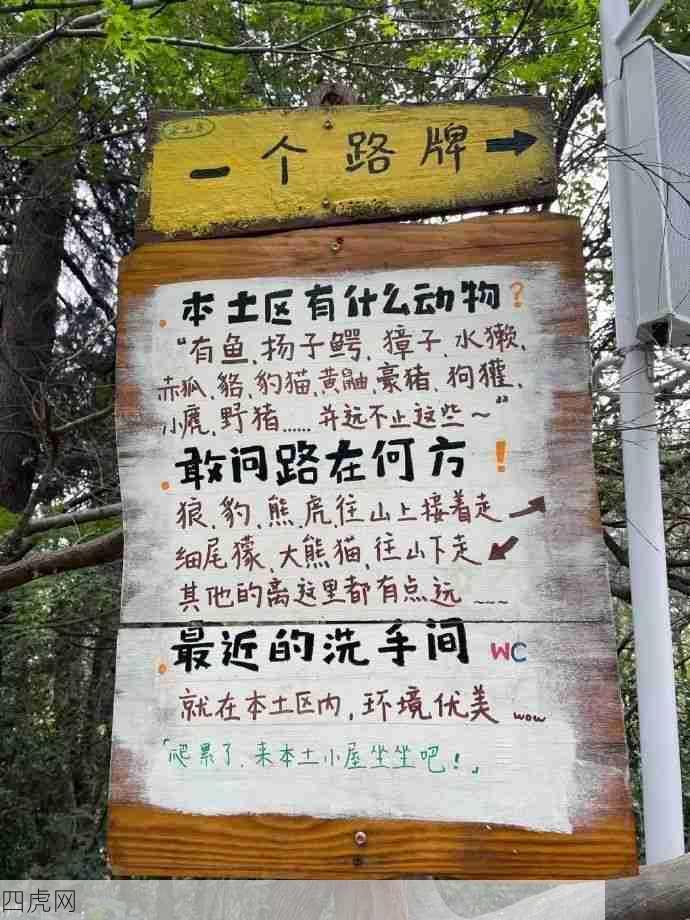 本土区
一个路牌→
·本土区有什么动物?
"有鱼、扬子鳄、獐子、水獭、
赤狐、貉、豹猫、黄鼬、豪猪、狗獾、
小麂、野猪……并远不止这些~"
·敢问路在何方!
狼、豹、熊、虎往山上接着走↗
细尾獴、大熊猫,往山下走↙
其他的离这里都有点远~~~
·最近的洗手间 WC
就在本土区内,环境优美 wow
「爬累了,来本土小屋坐坐吧!」
四虎网